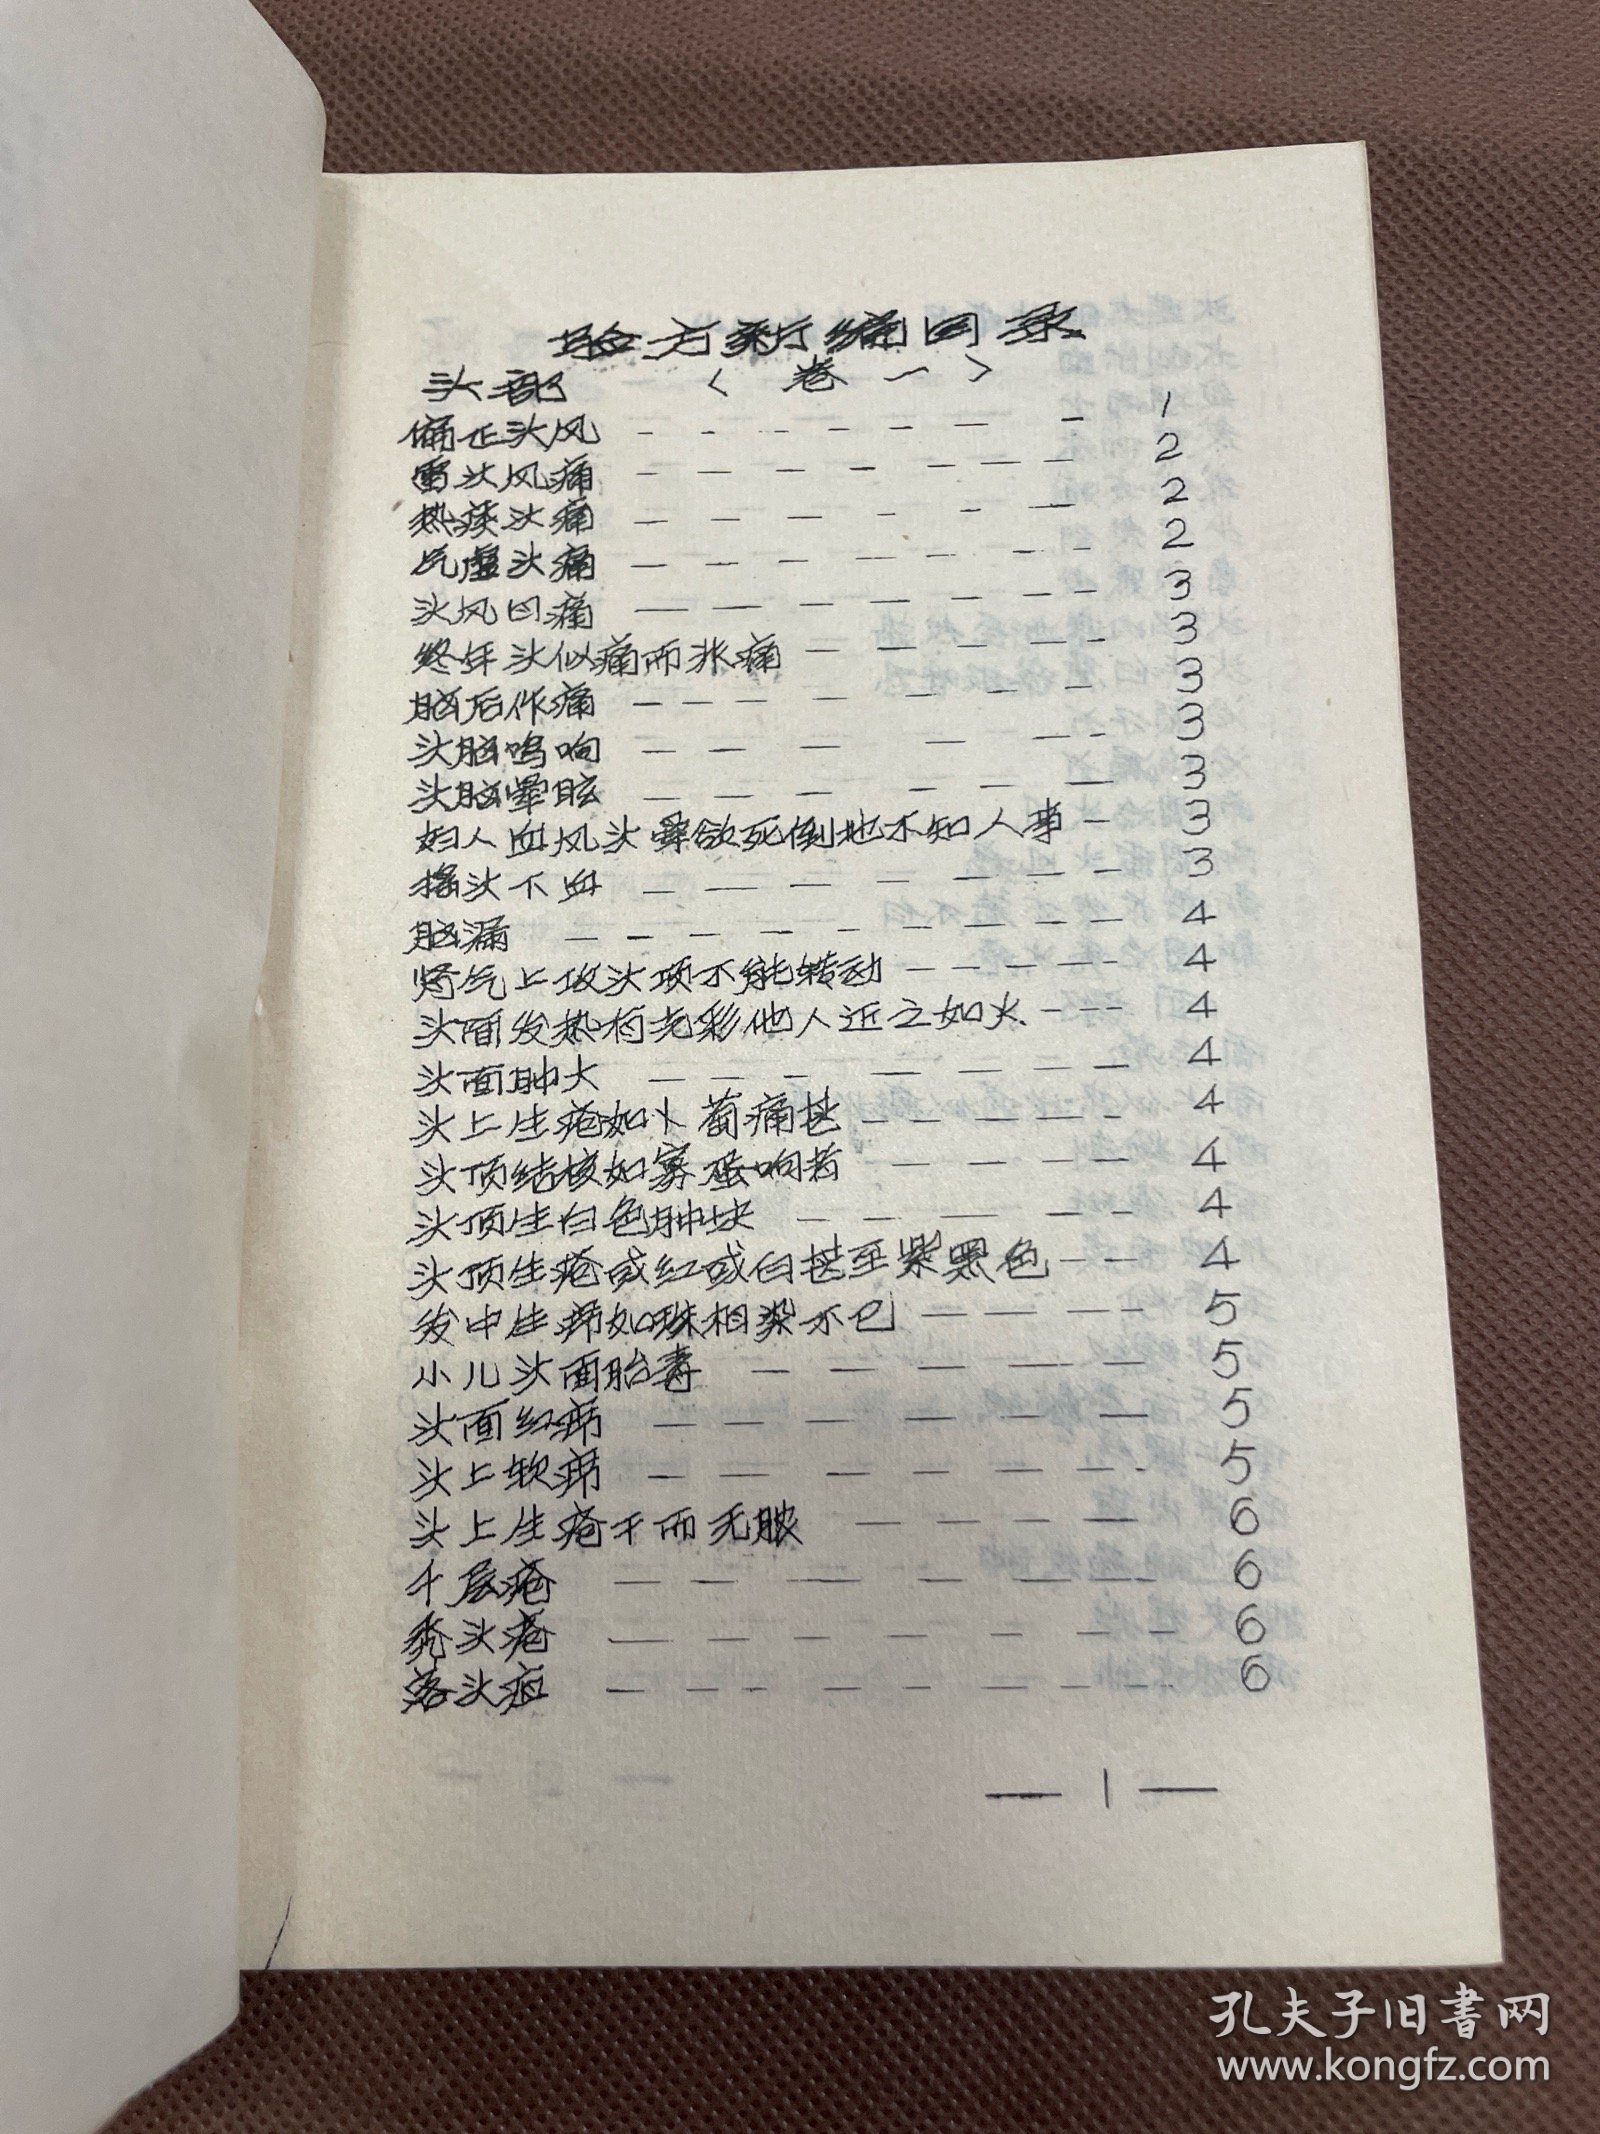 验方新编目录
头部 〈卷一〉
偏正头风 - - - - - - - - 1
雷头风痛 - - - - - - - - - 2
热痰头痛 - - - - - - - - 2
气虚头痛 - - - - - - - - - 2
头风日痛 - - - - - - - - 3
终年头似痛而非痛 - - - - - - 3
脑后作痛 - - - - - - - - - 3
头脑鸣响 - - - - - - - 3
头脑晕眩 - - - - - - - 3
妇人血风头晕欲死倒地不知人事 - 3
摇头下血 - - - - - - - - - 3
脑漏 - - - - - - - - - - 4
肾气上攻头项不能转动 - - - - - 4
头面发热有光彩他人近之如火 - - - 4
头面肿大 - - - - - - - - 4
头上生疮如卜萄痛甚 - - - - - - 4
头顶结核如雾蛋响者 - - - - - 4
头顶生白色肿块 - - - - - - 4
头顶生疮或红或白甚至紫黑色 - - 4
发中生疖如珠相染不已 - - - - - 5
小儿头面胎毒 - - - - - - 5
头面红疖 - - - - - - - - 5
头上软疖 - - - - - - - - 5
头上生疮干而无脓 - - - - - 6
千层疮 - - - - - - - - - 6
秃头疮 - - - - - - - - - - 6
落头疽 - - - - - - - - - 6
— 1 —
孔夫子旧书网
www.kongfz.com